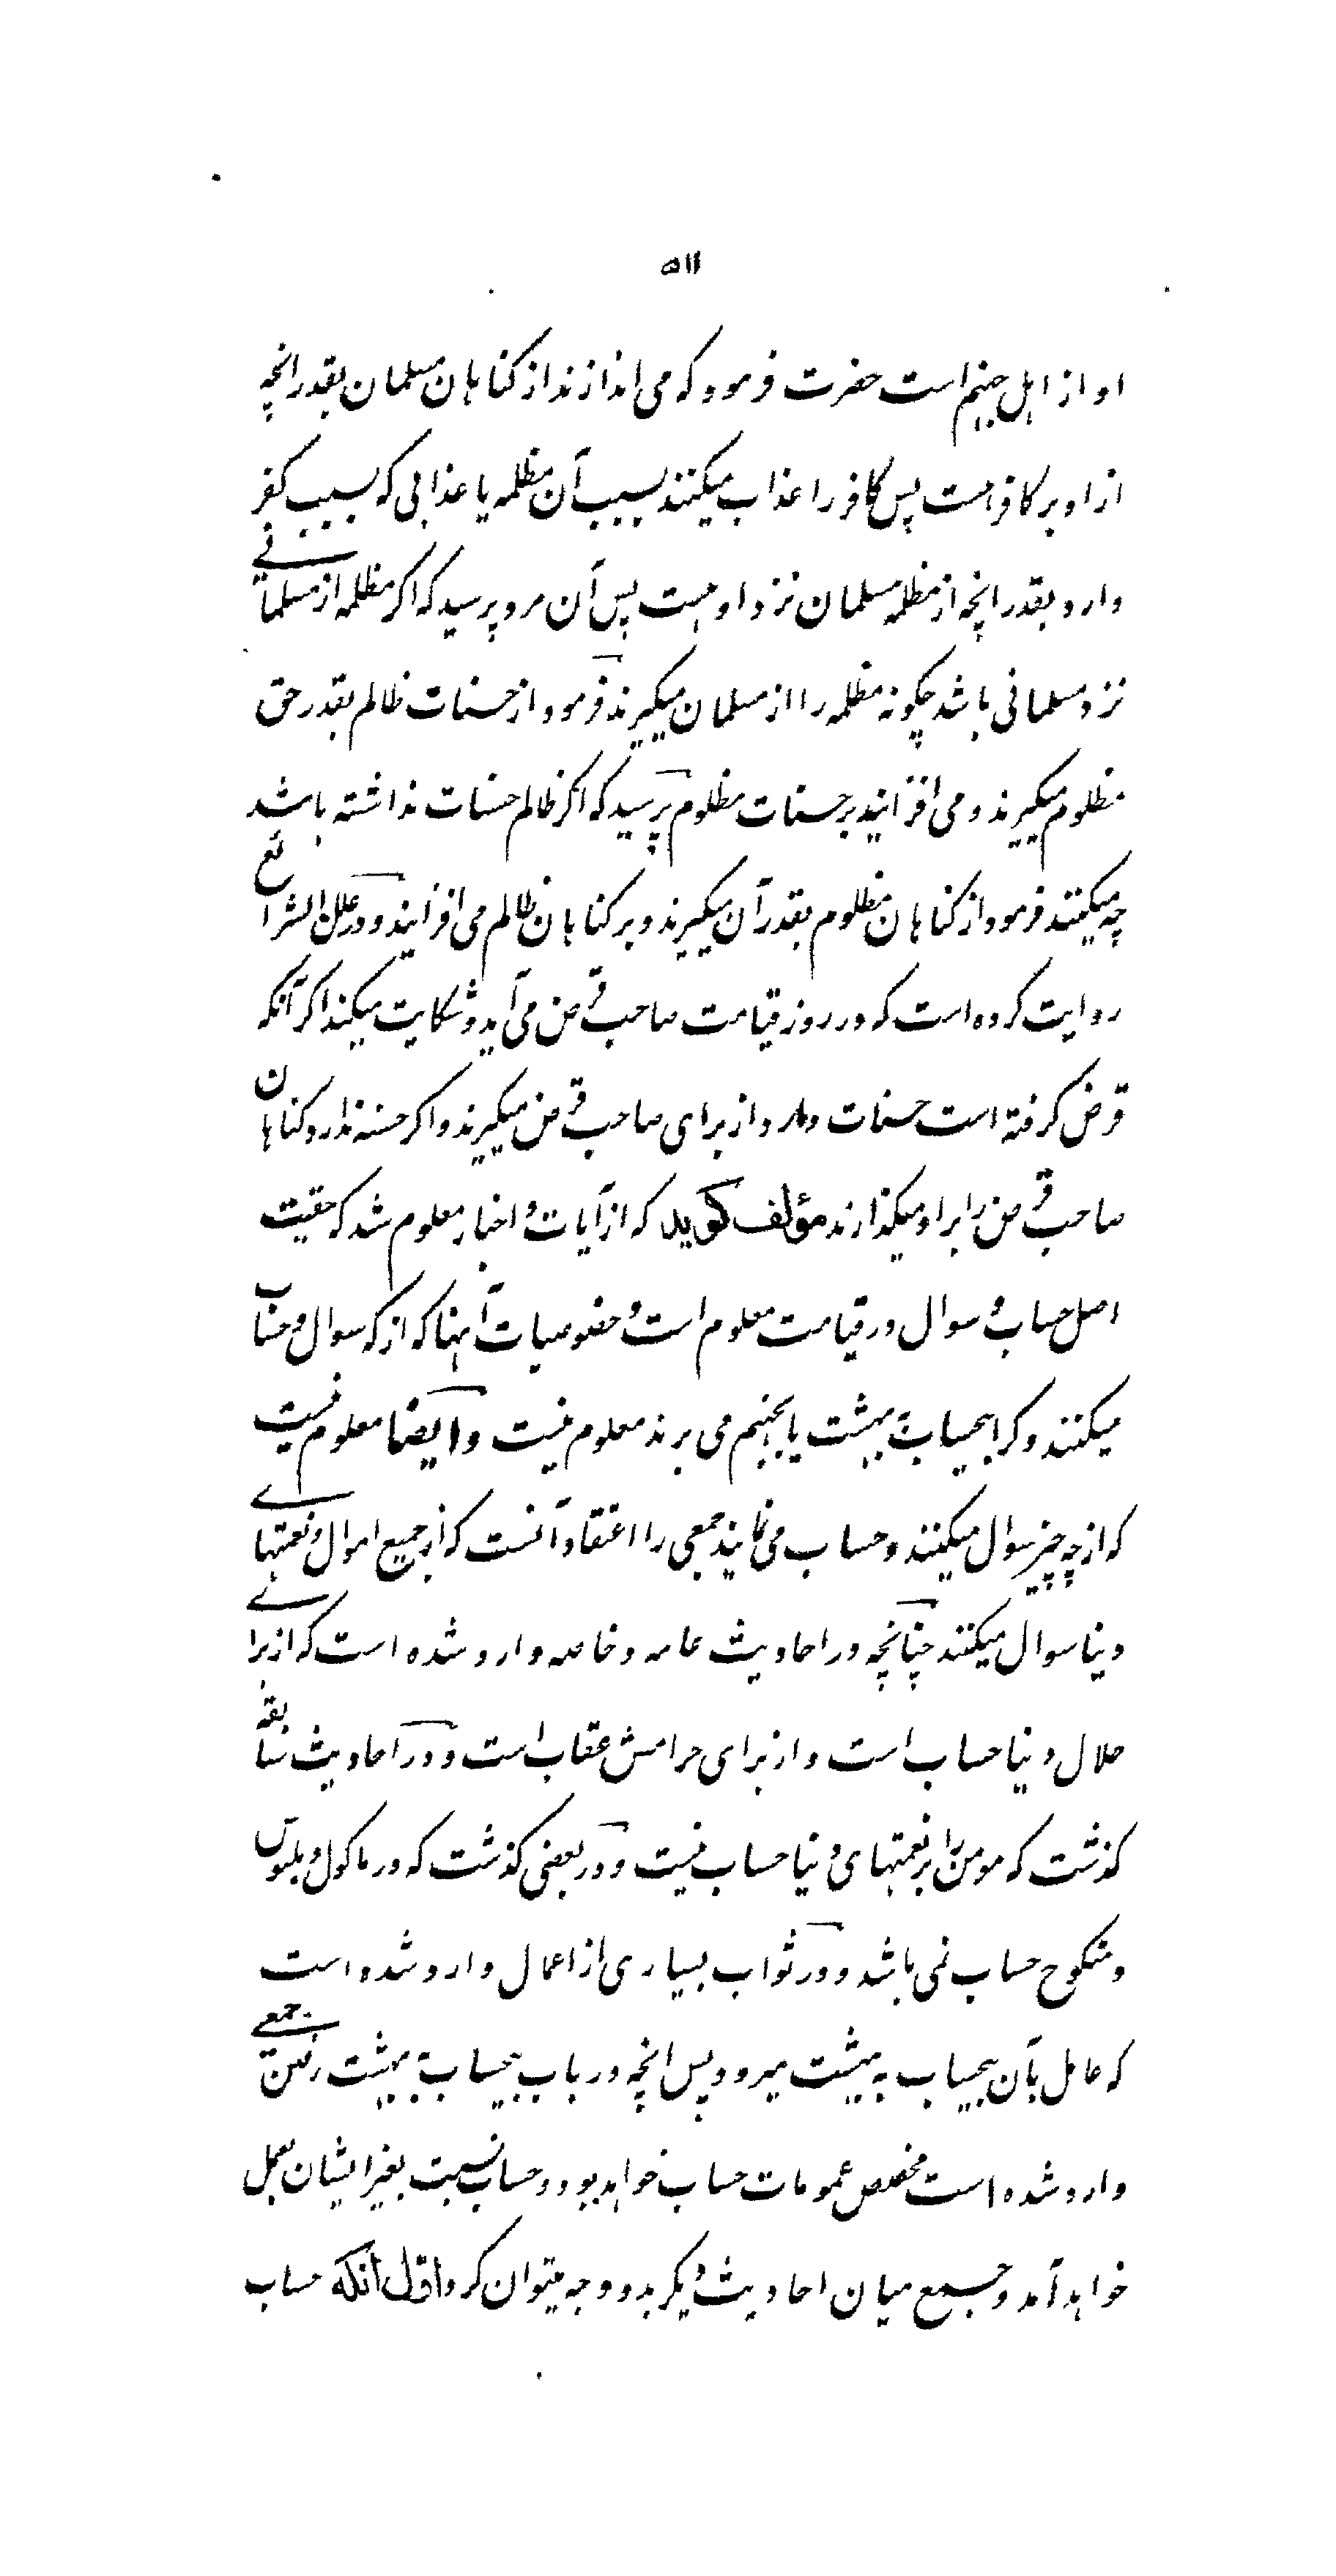 ۵۱۱
او از اهل جهنم است حضرت فرمود که می اندازند از کناهان مسلمان بقدر انچه
از او بر کافر هست پس کافر را عذاب میکنند بسبب آن مظلمه با عذابی که بسبب کفر
دارد بقدر انچه از مظلمه مسلمان نزد او هست پس آن مرد پرسید که اکر مظلمه از مسلمانے
نزد مسلمانی باشد چکونه مظلمه را از مسلمان میکیرند فرمود از حسنات ظالم بقدر حق
مظلوم میکیرند و می افزایند بر حسنات مظلوم پرسید که اکر ظالم حسنات نداشته باشد
چه میکنند فرمود از کناهان مظلوم بقدر آن میکیرند و بر کناهان ظالم می افزایند و در علل الشرائع
روایت کرده است که در روز قیامت صاحب قرض می آید و شکایت میکند اکر آنکه
قرض کرفته است حسنات دارد از برای صاحب قرض میکیرند و اکر حسنه ندارد کناهان
صاحب قرض را بر او میکذارند مؤلف کوید که از آیات و اخبار معلوم شد که حقیت
اصل حساب و سوال در قیامت معلوم است و خصوصیات آنها که از که سوال و حساب
میکنند و کرا بیحساب به بهشت یا بجهنم می برند معلوم نیست و ایضا معلوم نیست
که از چه چیز سوال میکنند و حساب می نمایند جمعی را اعتقاد آنست که از جمیع اموال و نعمتهاے
دنیا سوال میکنند چنانچه در احادیث عامه و خاصه وارد شده است که از براے
حلال دنیا حساب است و از برای حرامش عقاب است و در احادیث سابقه
کذشت که مومن را بر نعمتهای دنیا حساب نیست و در بعضی کذشت که در ماکول و ملبوس
و منکوح حساب نمی باشد و در ثواب بسیاری از اعمال وارد شده است
که عامل بآن بیحساب به بهشت میرود پس انچه در باب بیحساب به بهشت رفتن جمعے
وارد شده است مخصص عمومات حساب خواهد بود و حساب نسبت بغیر ایشان بعمل
خواهد آمد و جمع میان احادیث دیکر بدو وجه میتوان کرد اول آنکه حساب